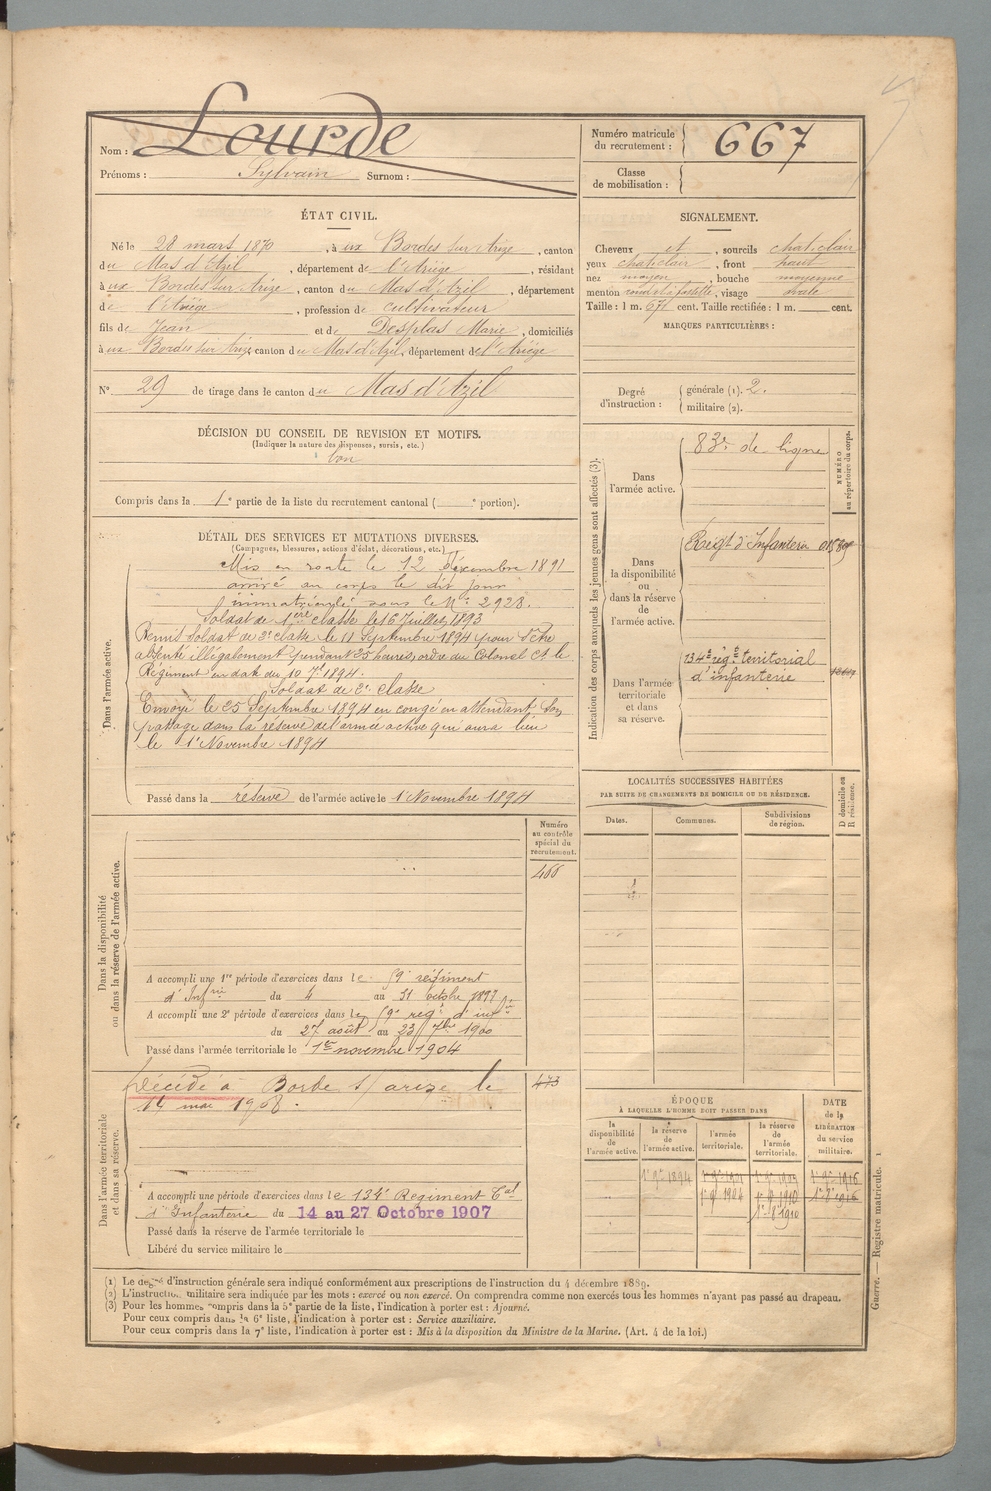 Nom : Lourde
Prénoms : Sylvain Surnom :
Numéro matricule du recrutement : 667
Classe de mobilisation :
ÉTAT CIVIL.
Né le 28 mars 1870, à ux Bordes sur Arize, canton
du Mas d'Azil, département de l'Ariège, résidant
à ux Bordes sur Arize, canton du Mas d'Azil, département
de l'Ariège, profession de cultivateur
fils de Jean et de Desplas Marie, domiciliés
à ux Bordes sur Arize, canton du Mas d'Azil, département de l'Ariège
N° 29 de tirage dans le canton du Mas d'Azil
DÉCISION DU CONSEIL DE REVISION ET MOTIFS.
(Indiquer la nature des dispenses, sursis, etc.)
bon
Compris dans la 1e partie de la liste du recrutement cantonal ( e portion).
SIGNALEMENT.
Cheveux et, sourcils chat.clair
yeux chat.clair, front haut
nez moyen, bouche moyenne
menton rond à fossette, visage ovale
Taille : 1 m. 67 cent. Taille rectifiée : 1 m. cent.
MARQUES PARTICULIÈRES :
Degré d'instruction : générale (1). 2.
militaire (2).
DÉTAIL DES SERVICES ET MUTATIONS DIVERSES.
(Campagnes, blessures, actions d'éclat, décorations, etc.)
Dans l'armée active.
Mis en route le 12 décembre 1891
arrivé au corps le dit jour
immatriculé sous le N° 2928.
Soldat de 1ère classe le 16 Juillet 1893
Remis soldat de 2e classe le 11 Septembre 1894 pour s'être
absenté illégalement pendant 35 heures, ordre du Colonel Ct le
Régiment en date du 10 7bre 1894.
Soldat de 2e classe
Envoyé le 25 Septembre 1894 en congé en attendant son
passage dans la réserve de l'armée active qui aura lieu
le 1er Novembre 1894
Passé dans la réserve de l'armée active le 1er Novembre 1894
Indication des corps auxquels les jeunes gens sont affectés (3).
NUMÉRO au répertoire du corps.
Dans l'armée active.
83e de ligne
Dans la disponibilité ou dans la réserve de l'armée active.
Régt d'Infanterie
Dans l'armée territoriale et dans sa réserve.
134e rég.t territorial
d'infanterie
LOCALITÉS SUCCESSIVES HABITÉES
PAR SUITE DE CHANGEMENTS DE DOMICILE OU DE RÉSIDENCE.
Dates. Communes. Subdivisions de région.
D domicile ou R résidence.
Dans la disponibilité
ou dans la réserve de l'armée active.
Numéro au contrôle spécial du recrutement.
466
A accompli une 1re période d'exercices dans le 59e régiment
d'Infrie du 4 au 31 octobre 1897
A accompli une 2e période d'exercices dans le 59e régt d'infie
du 27 août au 23 7bre 1900
Passé dans l'armée territoriale le 1er novembre 1904
Dans l'armée territoriale
et dans sa réserve.
Décédé à Borde s/ arize le
14 mai 1908.
473
A accompli une période d'exercices dans le 134e Régiment Tal
d'Infanterie du 14 au 27 Octobre 1907
Passé dans la réserve de l'armée territoriale le
Libéré du service militaire le
ÉPOQUE
À LAQUELLE L'HOMME DOIT PASSER DANS
la disponibilité de l'armée active.
la réserve de l'armée active.
l'armée territoriale.
la réserve de l'armée territoriale.
DATE de la LIBÉRATION du service militaire.
1er 9bre 1894
1er 9bre 1904 1er 9bre 1910
(1) Le degré d'instruction générale sera indiqué conformément aux prescriptions de l'instruction du 4 décembre 1889.
(2) L'instruction militaire sera indiquée par les mots : exercé ou non exercé. On comprendra comme non exercés tous les hommes n'ayant pas passé au drapeau.
(3) Pour les hommes compris dans la 5e partie de la liste, l'indication à porter est : Ajourné.
Pour ceux compris dans la 6e liste, l'indication à porter est : Service auxiliaire.
Pour ceux compris dans la 7e liste, l'indication à porter est : Mis à la disposition du Ministre de la Marine. (Art. 4 de la loi.)
Guerre. — Registre matricule. 1